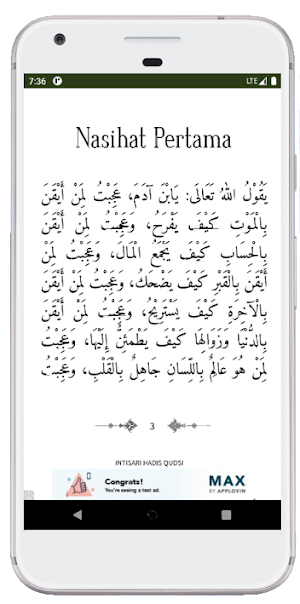 7:36
LTE
Nasihat Pertama
يَقُوْلُ اللهُ تَعَالَى: يَابْنَ آدَمَ، عَجِبْتُ لِمَنْ أَيْقَنَ
بِالْمَوْتِ كَيْفَ يَفْرَحُ، وَعَجِبْتُ لِمَنْ أَيْقَنَ
بِالْحِسَابِ كَيْفَ يَجْمَعُ الْمَالَ، وَعَجِبْتُ لِمَنْ
أَيْقَنَ بِالْقَبْرِ كَيْفَ يَضْحَكُ، وَعَجِبْتُ لِمَنْ أَيْقَنَ
بِالْآخِرَةِ كَيْفَ يَسْتَرِيْحُ، وَعَجِبْتُ لِمَنْ أَيْقَنَ
بِالدُّنْيَا وَزَوَالِهَا كَيْفَ يَطْمَئِنُّ إِلَيْهَا، وَعَجِبْتُ
لِمَنْ هُوَ عَالِمٌ بِاللِّسَانِ جَاهِلٌ بِالْقَلْبِ، وَعَجِبْتُ
3
INTISARI HADIS QUDSI
Congrats!
You're seeing a test ad.
MAX
BY APPLOVIN